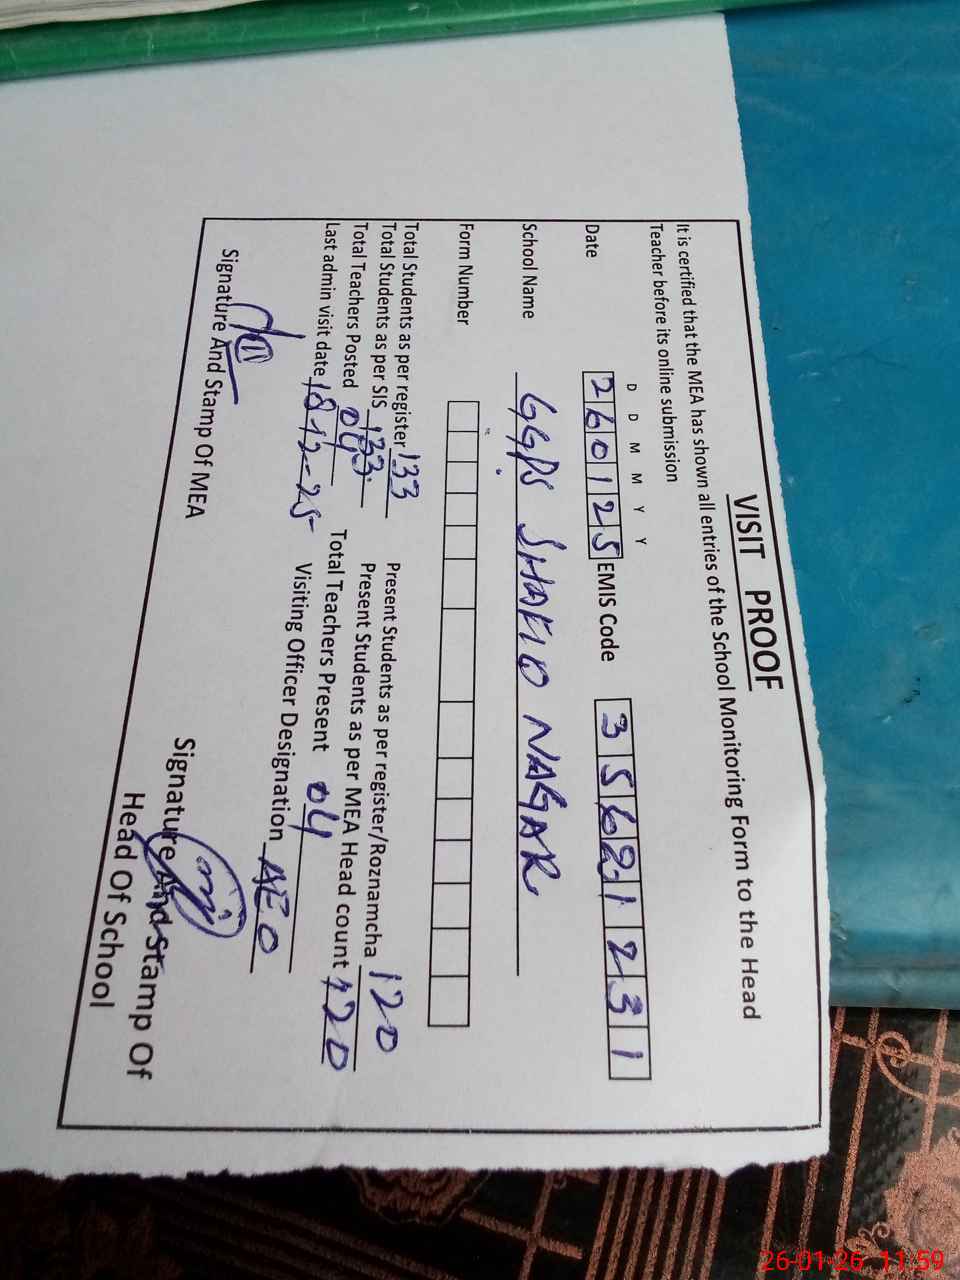 VISIT PROOF
It is certified that the MEA has shown all entries of the School Monitoring Form to the Head
Teacher before its online submission
D D M M Y Y
Date 260125 EMIS Code 35621231
School Name GGPS SHAHID NAGAR
Form Number
Total Students as per register 133 Present Students as per register/Roznamcha 120
Total Students as per SIS 133 Present Students as per MEA Head count 120
Total Teachers Posted 04 Total Teachers Present 04
Last admin visit date 18-12-25 Visiting Officer Designation AEO
Signature And Stamp Of MEA
Signature And Stamp Of
Head Of School
26-01-26 11:59